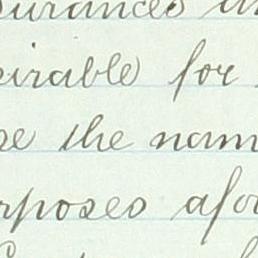 surances
eirable for
se the nam
rposes afo